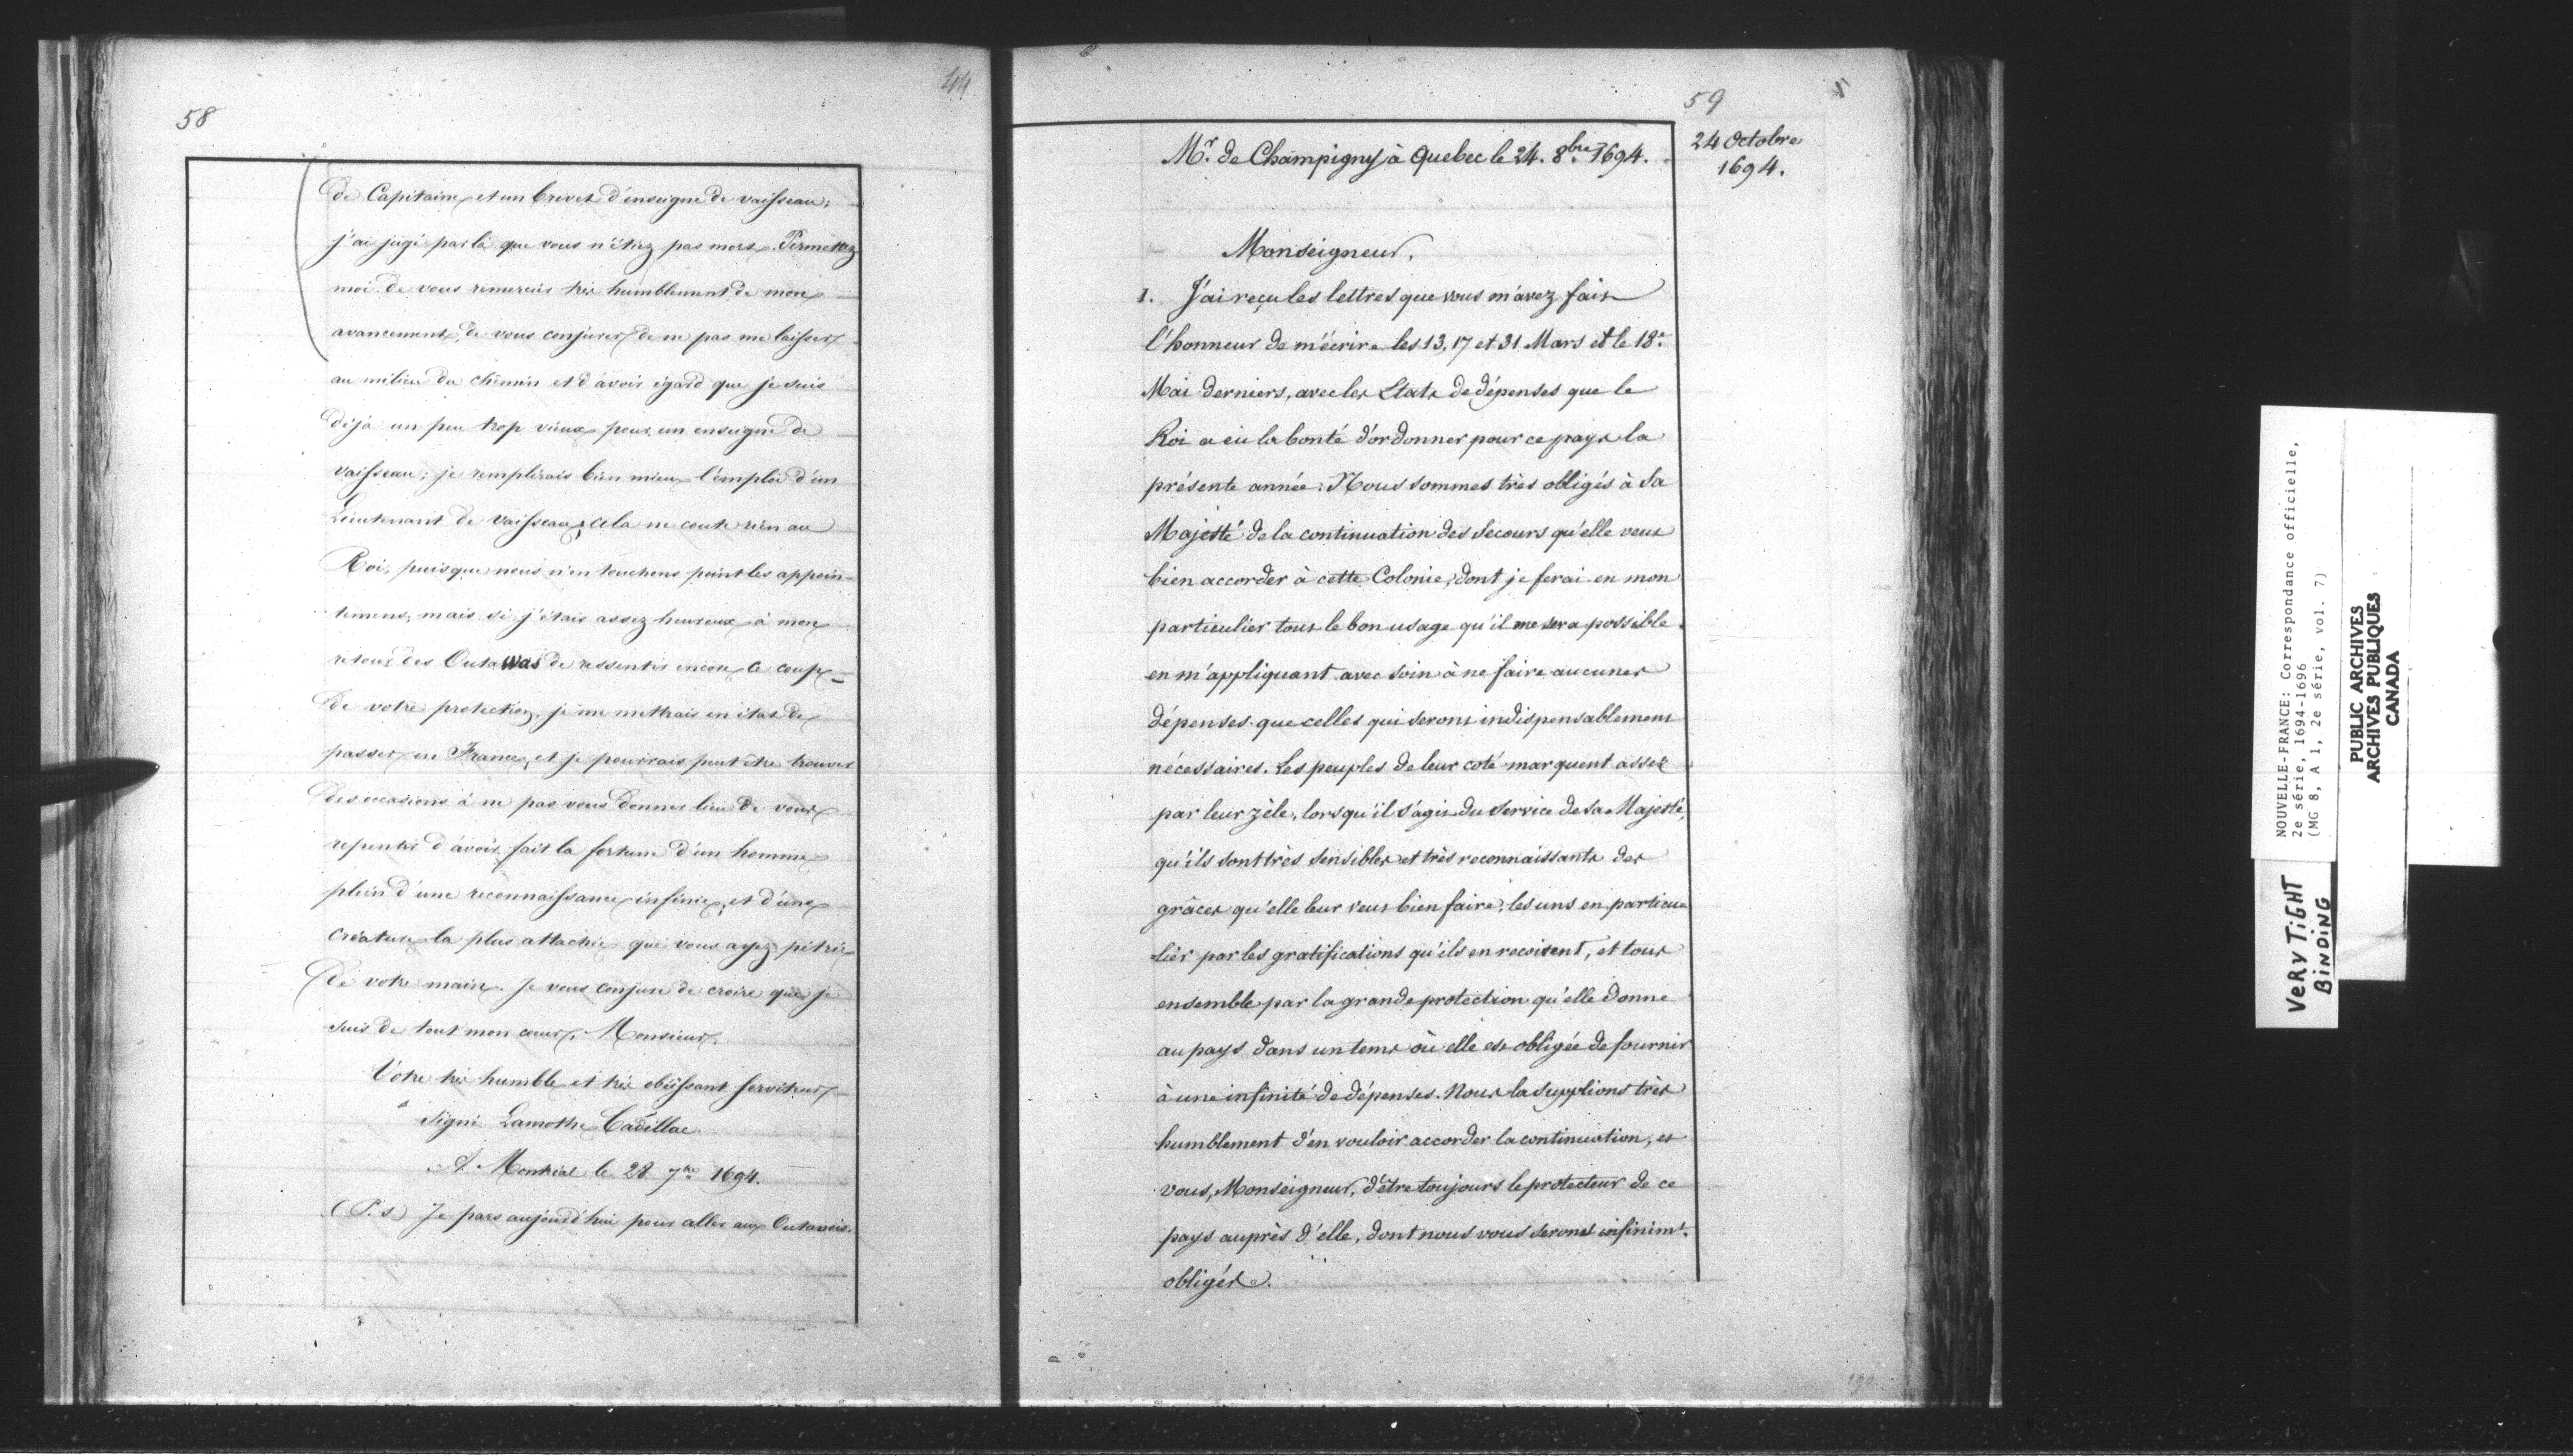 58
44
de Capitaine et un brevet d'enseigne de vaisseau;
j'ai jugé par là que vous n'étiez pas mort. Permettez
moi de vous remercier très humblement de mon
avancement, de vous conjurer de ne pas me laisser
au milieu du chemin et d'avoir égard que je suis
déjà un peu trop vieux pour un enseigne de
vaisseau; je remplirais bien mieux l'emploi d'un
Lieutenant de vaisseau; cela ne coute rien au
Roi, puisque nous n'en touchons point les appoin-
temens, mais si j'étais assez heureux à mon
retour des Outawas de ressentir encore ce coup
de votre protection, je me mettrais en état de
passer en France, et je pourrais peut être trouver
des occasions à ne pas vous donner lieu de vous
repentir d'avoir fait la fortune d'un homme
plein d'une reconnaissance infinie, et d'une
créature la plus attachée que vous ayez pétrie
de votre main. Je vous conjure de croire que je
suis de tout mon cœur, Monsieur,
Votre très humble et très obéissant serviteur
Signé Lamothe Cadillac
A Montréal le 28 7bre 1694.
(P.s) Je pars aujourd'hui pour aller aux Outaouis.
59
24 Octobre
1694.
Mr. de Champigny à Quebec le 24. 8bre 1694.
Monseigneur,
1. J'ai reçu les lettres que vous m'avez fait
l'honneur de m'écrire les 13, 17 et 31 Mars et le 18e
Mai derniers, avec les Etats de dépenses que le
Roi a eu la bonté d'ordonner pour ce pays la
présente année: Nous sommes très obligés à Sa
Majesté de la continuation des Secours qu'elle veut
bien accorder à cette Colonie, dont je ferai en mon
particulier tout le bon usage qu'il me sera possible
en m'appliquant avec soin à ne faire aucunes
dépenses que celles qui seront indispensablement
nécessaires. Les peuples de leur coté marquent assez
par leur zèle, lorsqu'il s'agit du Service de Sa Majesté,
qu'ils sont très sensibles et très reconnaissants des
grâces qu'elle leur veut bien faire, les uns en particu
-lier par les gratifications qu'ils en reçoivent, et tous
ensemble par la grande protection qu'elle donne
au pays dans un tems où elle est obligée de fournir
à une infinité de dépenses. Nous la supplions très
humblement d'en vouloir accorder la continuation, et
vous, Monseigneur, d'être toujours le protecteur de ce
pays auprès d'elle, dont nous vous serons infinimt.
obligés.
NOUVELLE-FRANCE: Correspondance officielle,
2e série, 1694-1696
(MG 8, A 1, 2e série, vol. 7)
PUBLIC ARCHIVES
ARCHIVES PUBLIQUES
CANADA
VERY TIGHT
BINDING